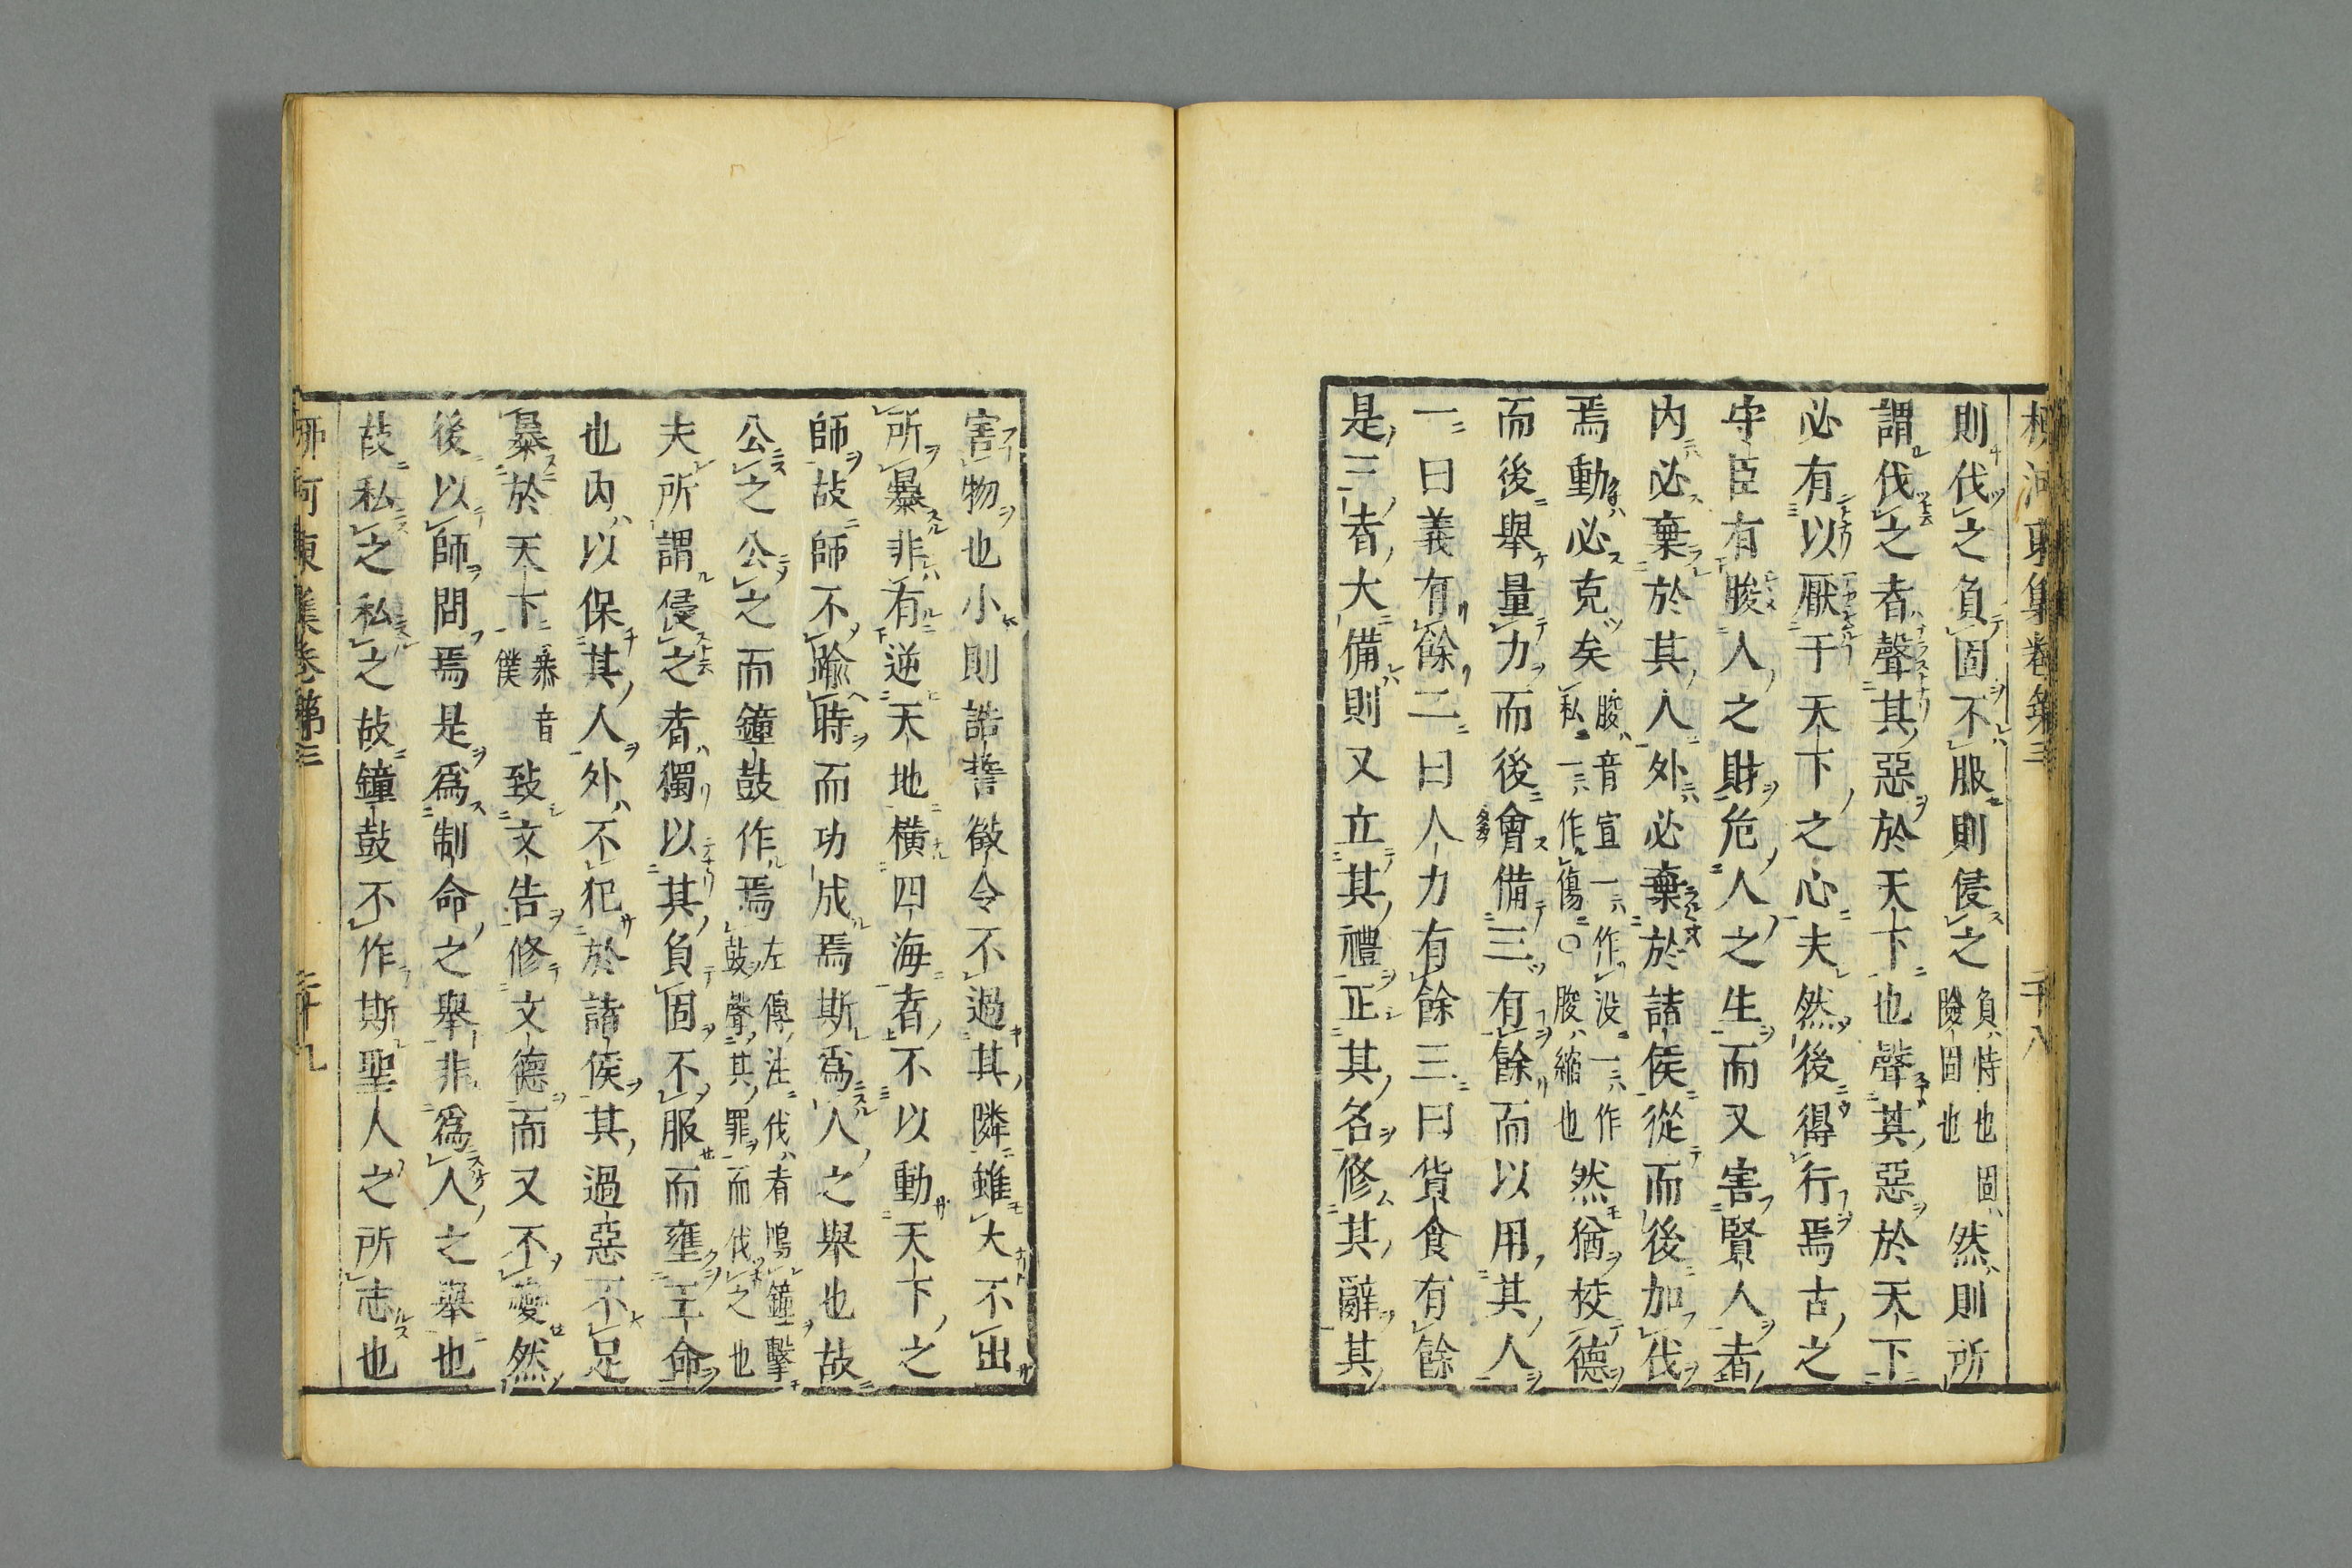 柳河東集卷第三 二十八
則伐之負固不服則侵之負恃也固險固也然則所
謂伐之者聲其惡於天下也聲其惡於天下
必有以厭于天下之心夫然後得行焉古之
守臣有朘人之財危人之生而又害賢人者
内必棄於其人外必棄於諸侯從而後加伐
焉動必克矣朘音宣一作没一作私一作傷〇朘縮也然猶校德
而後舉量力而後會備三有餘而以用其人
一曰義有餘二曰人力有餘三曰貨食有餘
是三者大備則又立其禮正其名修其辭其
害物也小則誥誓徵令不過其隣雖大不出
所暴非有逆天地橫四海者不以動天下之
師故師不踰時而功成焉斯爲人之舉也故
公之公之而鐘鼓作焉左傳注伐者鳴鐘擊鼓聲其罪而伐之也
夫所謂侵之者獨以其負固不服而壅王命
也内以保其人外不犯於諸侯其過惡不足
暴於天下暴音僕致文告修文德而又不變然
後以師問焉是爲制命之舉非爲人之舉也
故私之私之故鐘鼓不作斯聖人之所志也
柳河東集卷第三 二十九